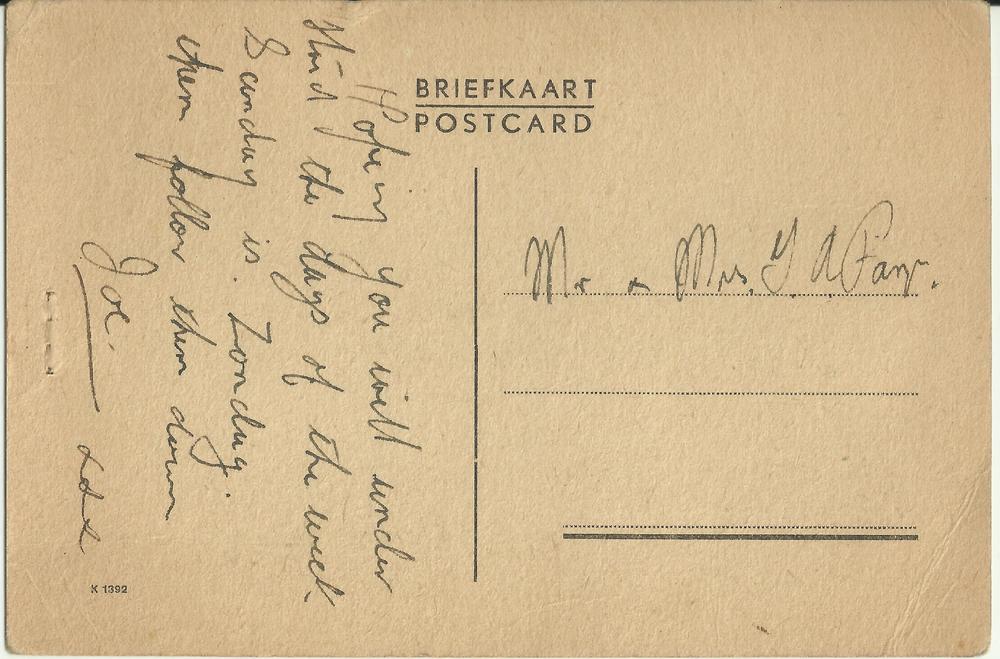 BRIEFKAART
POSTCARD
Hoping you will under
stand the days of the week
Sunday is. Zondag.
then follow them down
Joe. xxx
Mr & Mrs.
K 1392